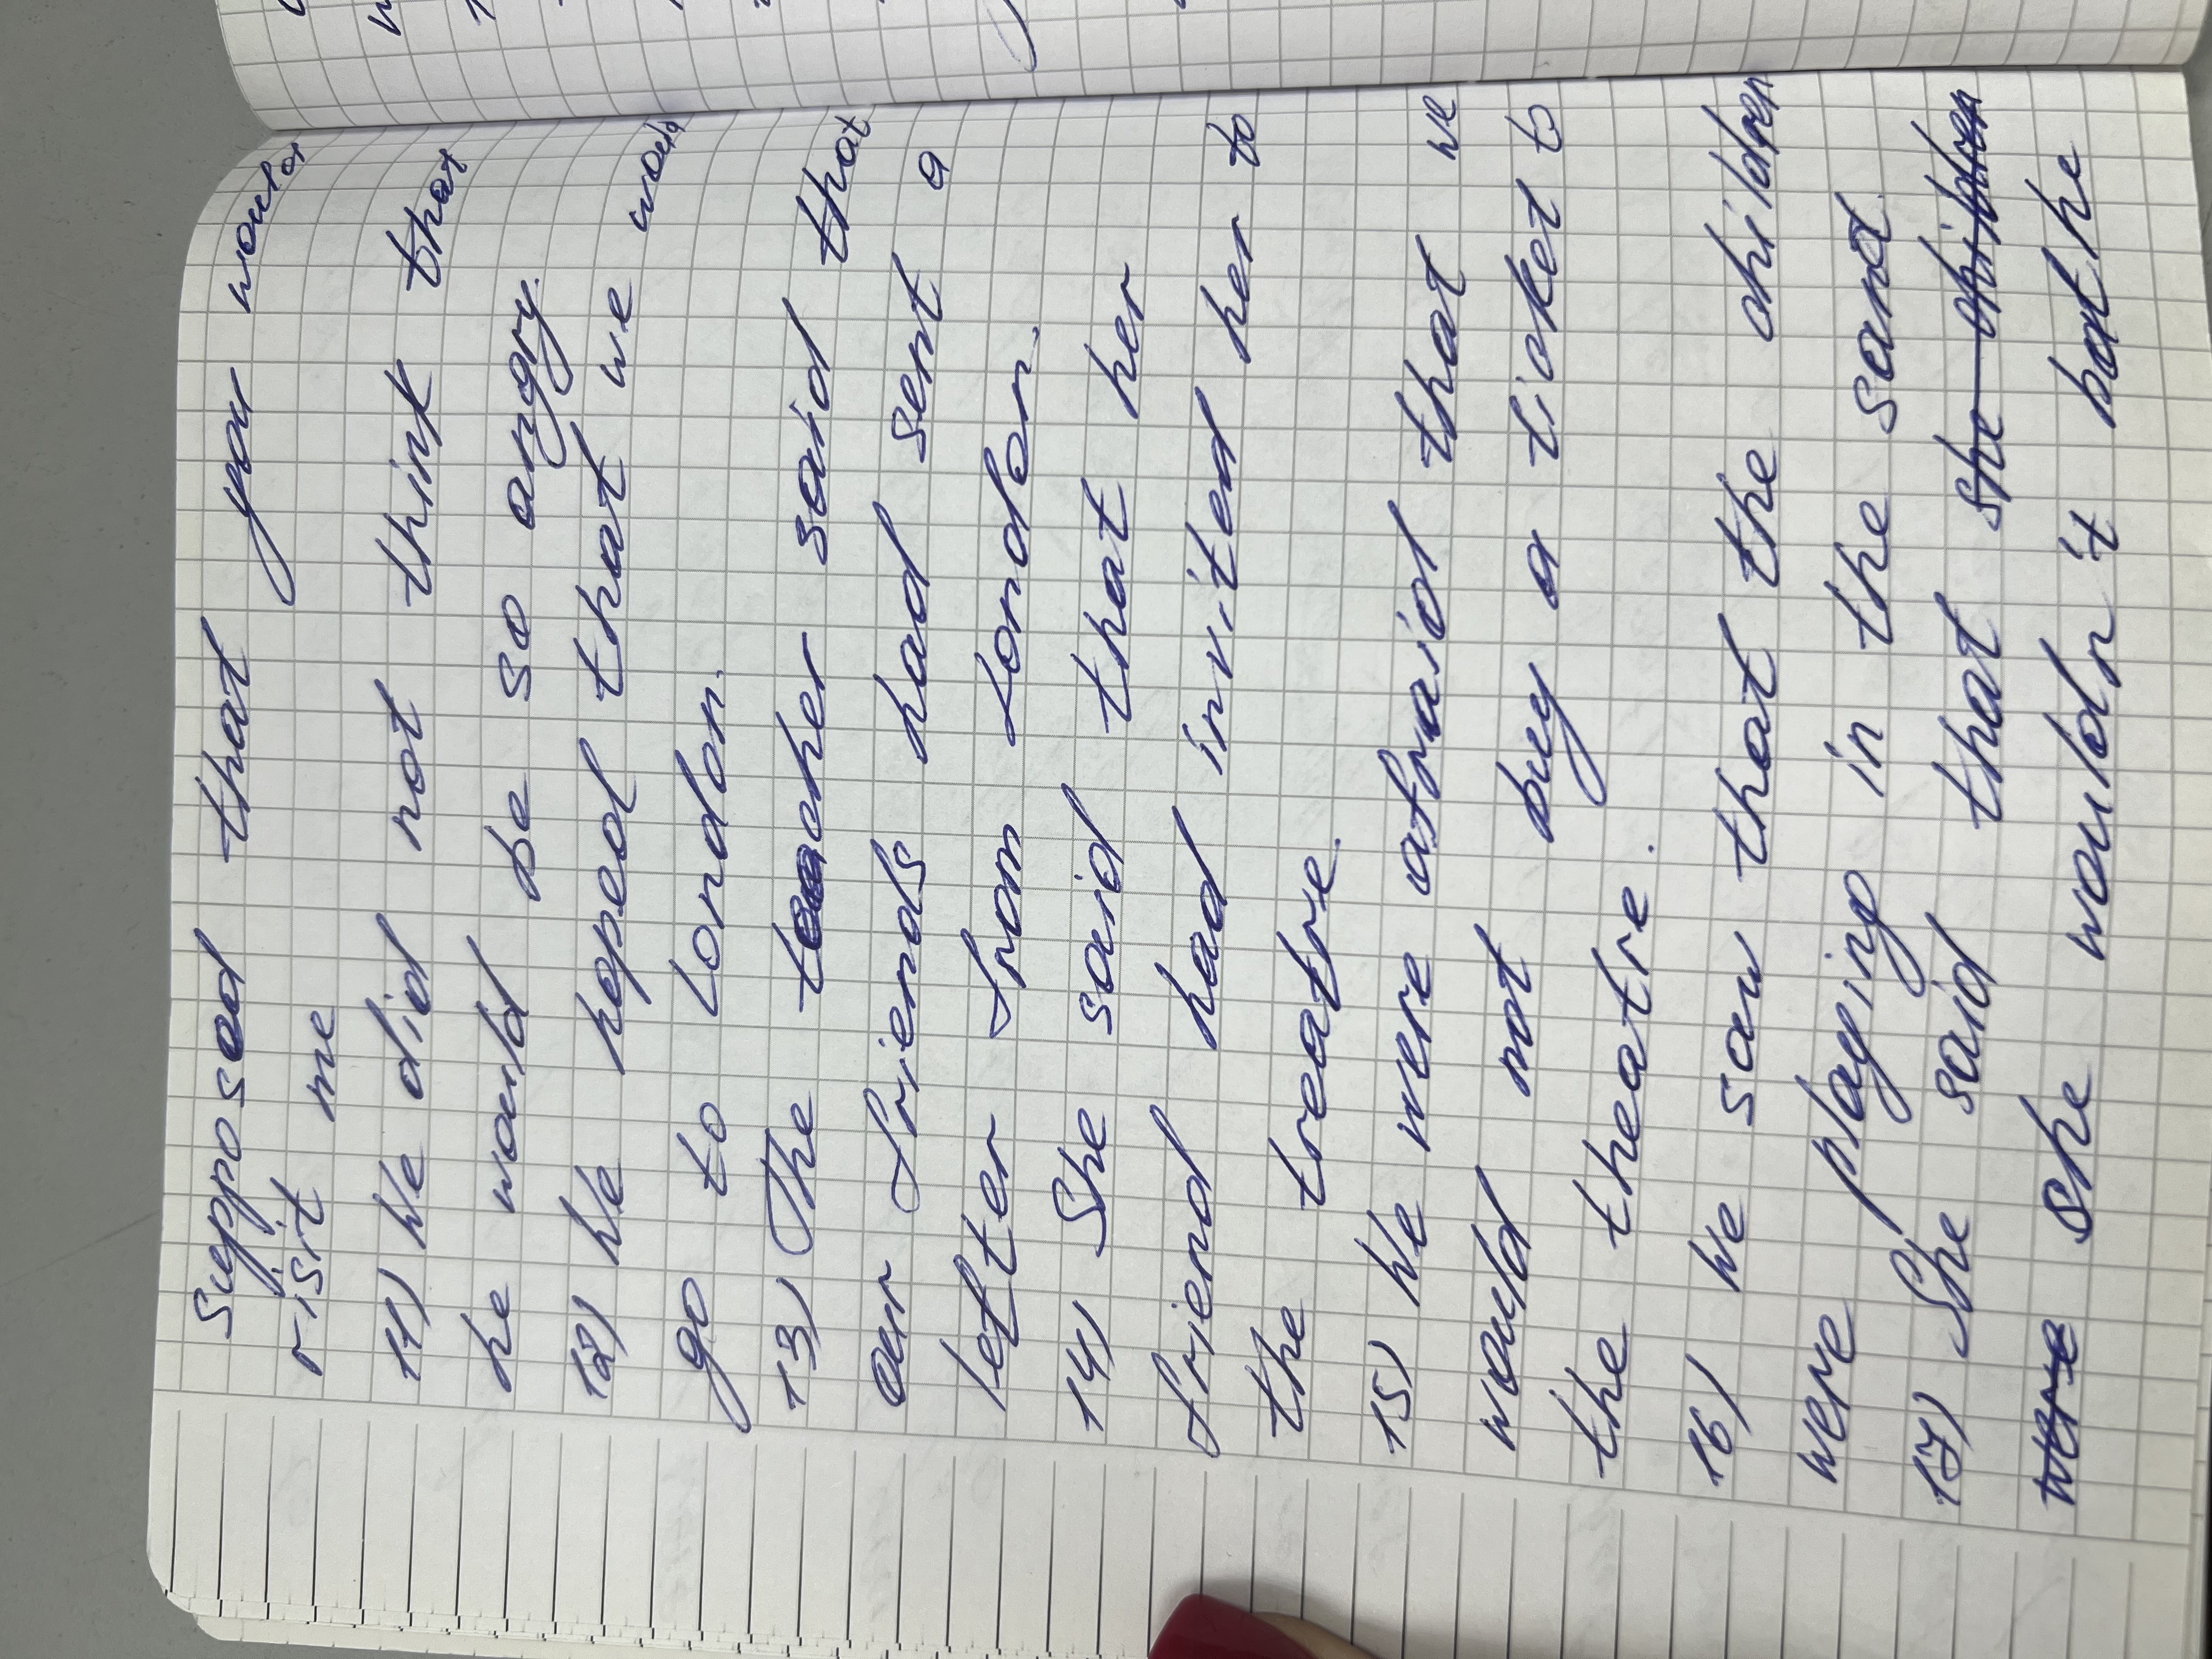 supposed that you would
visit me
11) We did not think that
he would be so angry.
12) We hoped that we would
go to London.
13) The teacher said that
our friends had sent a
letter from London.
14) She said that her
friend had invited her to
the treatre.
15) We were afraid that we
would not buy a ticket to
the theatre.
16) We saw that the children
were playing in the sand.
17) She said that she children
were she wouldn't bathe